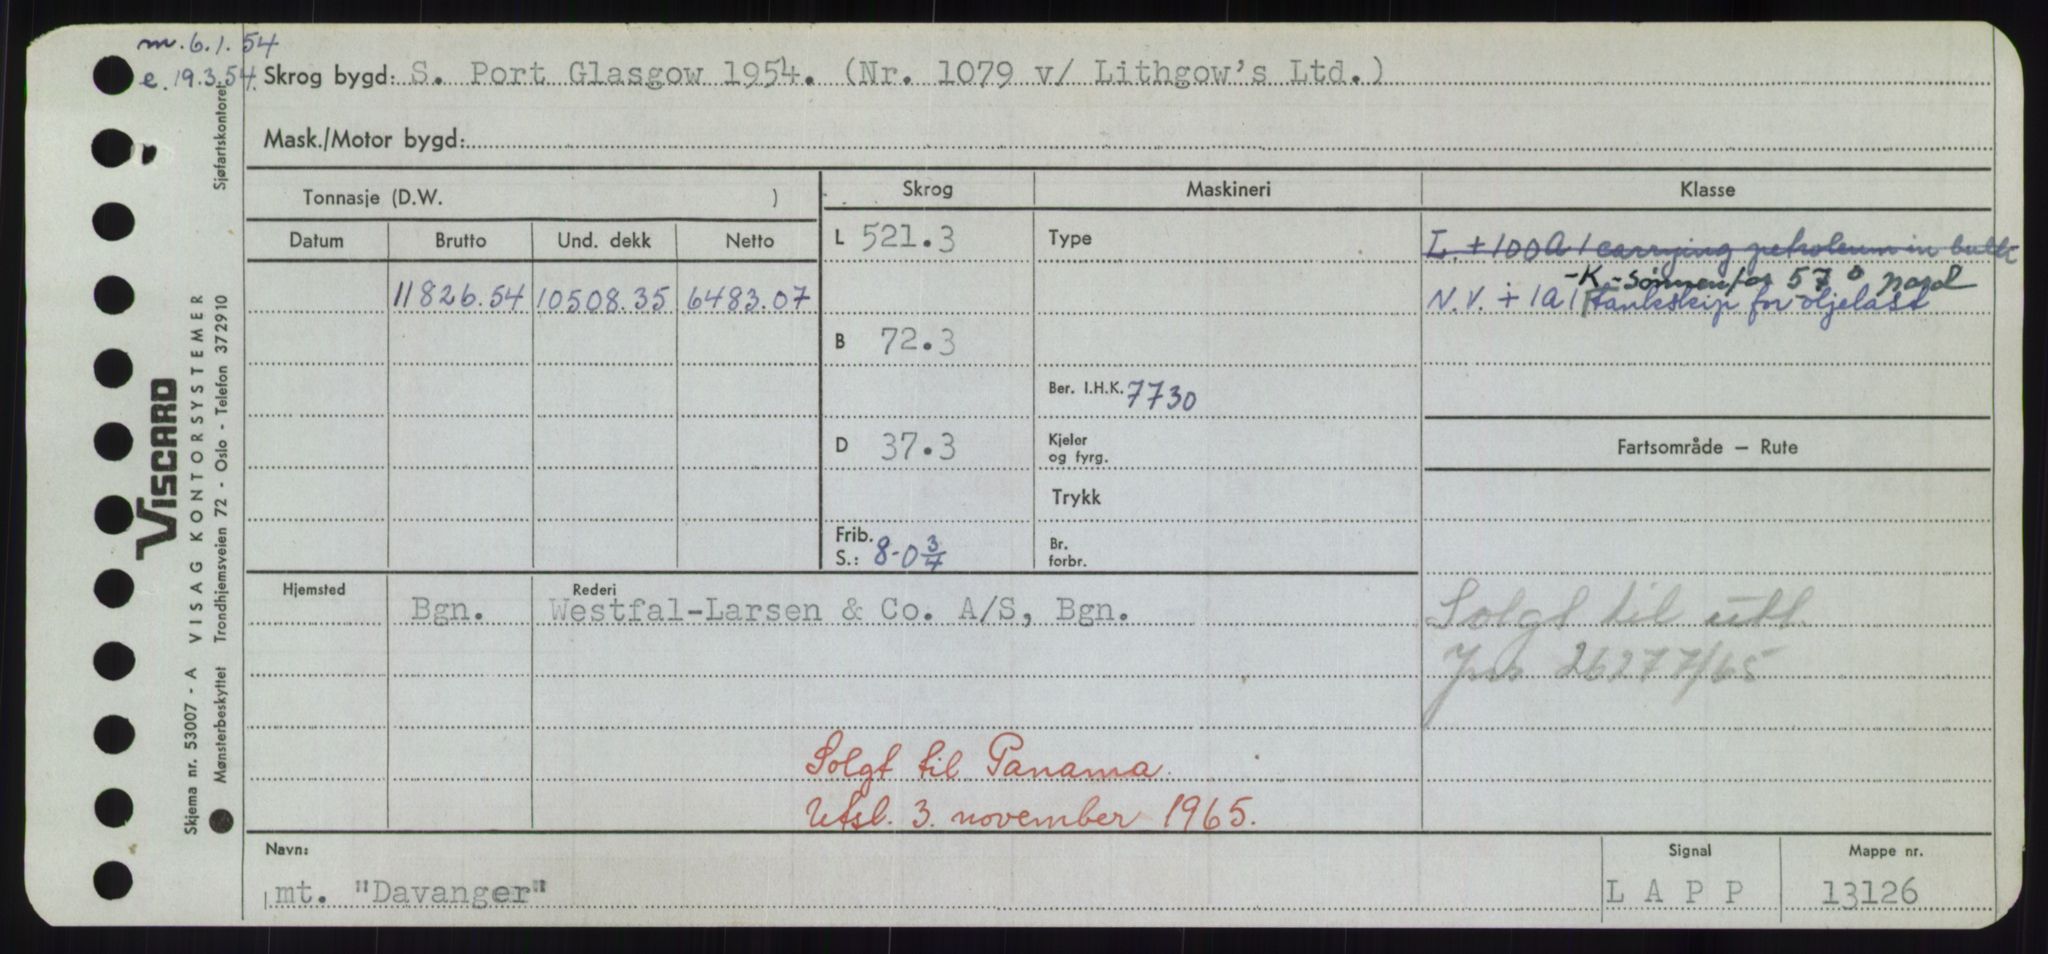 m. 6.1.54
e. 19.3.54.
Skrog bygd: S. Port Glasgow 1954. (Nr. 1079 v/ Lithgow's Ltd.)
Mask./Motor bygd:
Tonnasje (D.W. )
Skrog
Maskineri
Klasse
Datum
Brutto
Und. dekk
Netto
L 521.3
Type
L. + 100A1 carrying petroleum in bulk
-K- sønnenfor 57° nord
11826.54 10508.35 6483.07
N.V. + 1A1 tankskip for oljelast
B 72.3
Ber. I.H.K. 7730
D 37.3
Kjeler
og fyrg.
Fartsområde — Rute
Trykk
Frib.
S.: 8-0 3/4
Br.
forbr.
Hjemsted
Rederi
Bgn. Westfal-Larsen & Co. A/S, Bgn.
Solgt til utl.
Jnr 26277/65
Solgt til Panama.
Utsl. 3. november 1965.
Navn:
Signal
Mappe nr.
mt. "Davanger"
L A P P
13126
Sjøfartskontoret
VISCARD
Skjema nr. 53007 - A VISAG KONTORSYSTEMER
Mønsterbeskyttet Trondhjemsveien 72 - Oslo - Telefon 372910